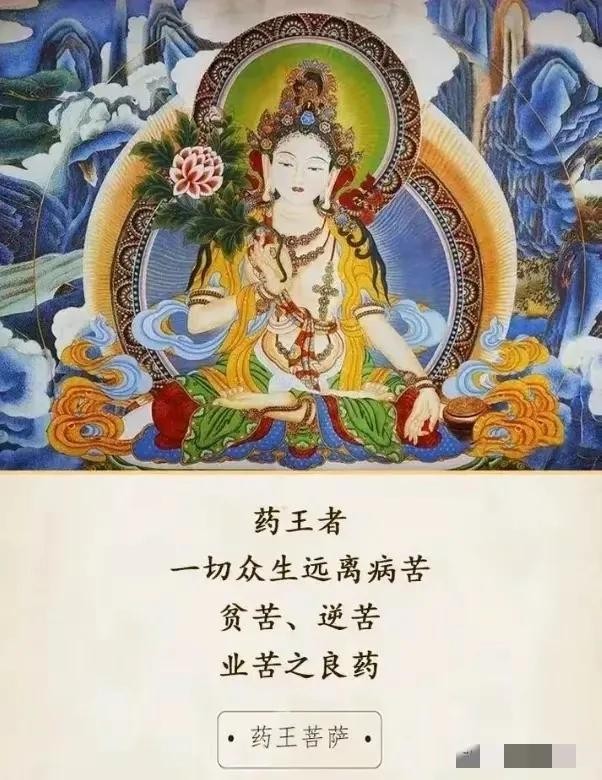 药王者
一切众生远离病苦
贫苦、逆苦
业苦之良药
· 药王菩萨 ·